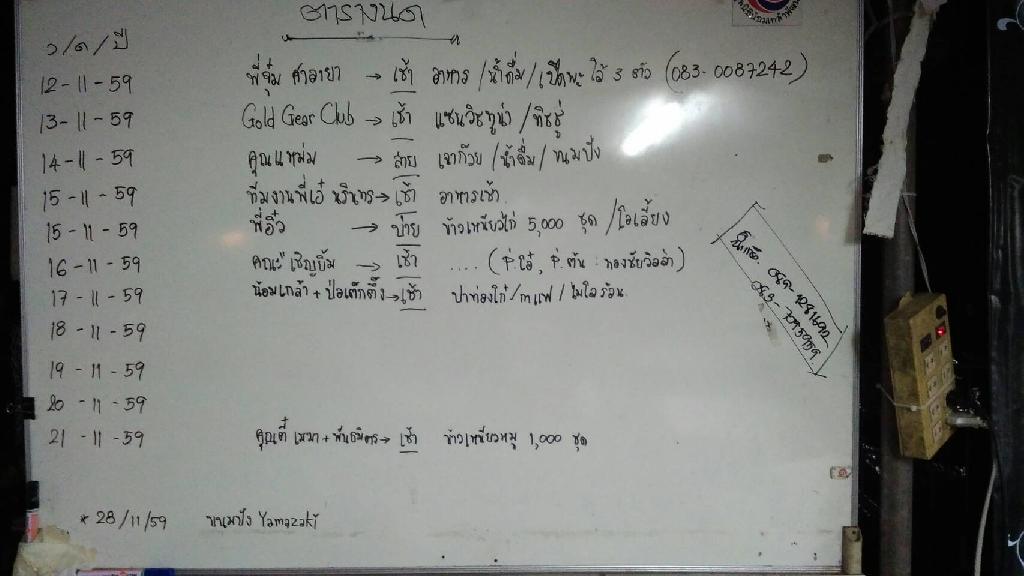 ตารางนัด
ว/ด/ปี
12-11-59 พี่จุ๋ม ศาลายา → เช้า อาหาร/น้ำดื่ม/ 3 ตัว (083-0087242)
13-11-59 Gold Gear Club → เช้า แซนวิชทูน่า/ทิชชู่
14-11-59 คุณแหม่ม → สาย เฉาก๊วย/น้ำดื่ม/ขนมปัง
15-11-59 ทีมงานพี่เอ๋ นรินทร → เช้า อาหารเช้า
15-11-59 พี่อิ๋ว → บ่าย ข้าวเหนียวไก่ 5,000 ชุด/โอเลี้ยง
16-11-59 เชิญยิ้ม → เช้า ....
17-11-59 น้อมเกล้า + ป่อเต็กตึ๊ง → เช้า ปาท่องโก๋/กาแฟ/ไมโลร้อน
18-11-59
19-11-59
20-11-59
21-11-59 คุณตี๋ + พันธมิตร → เช้า ข้าวเหนียวหมู 1,000 ชุด
* 28/11/59 ขนมปัง Yamazaki